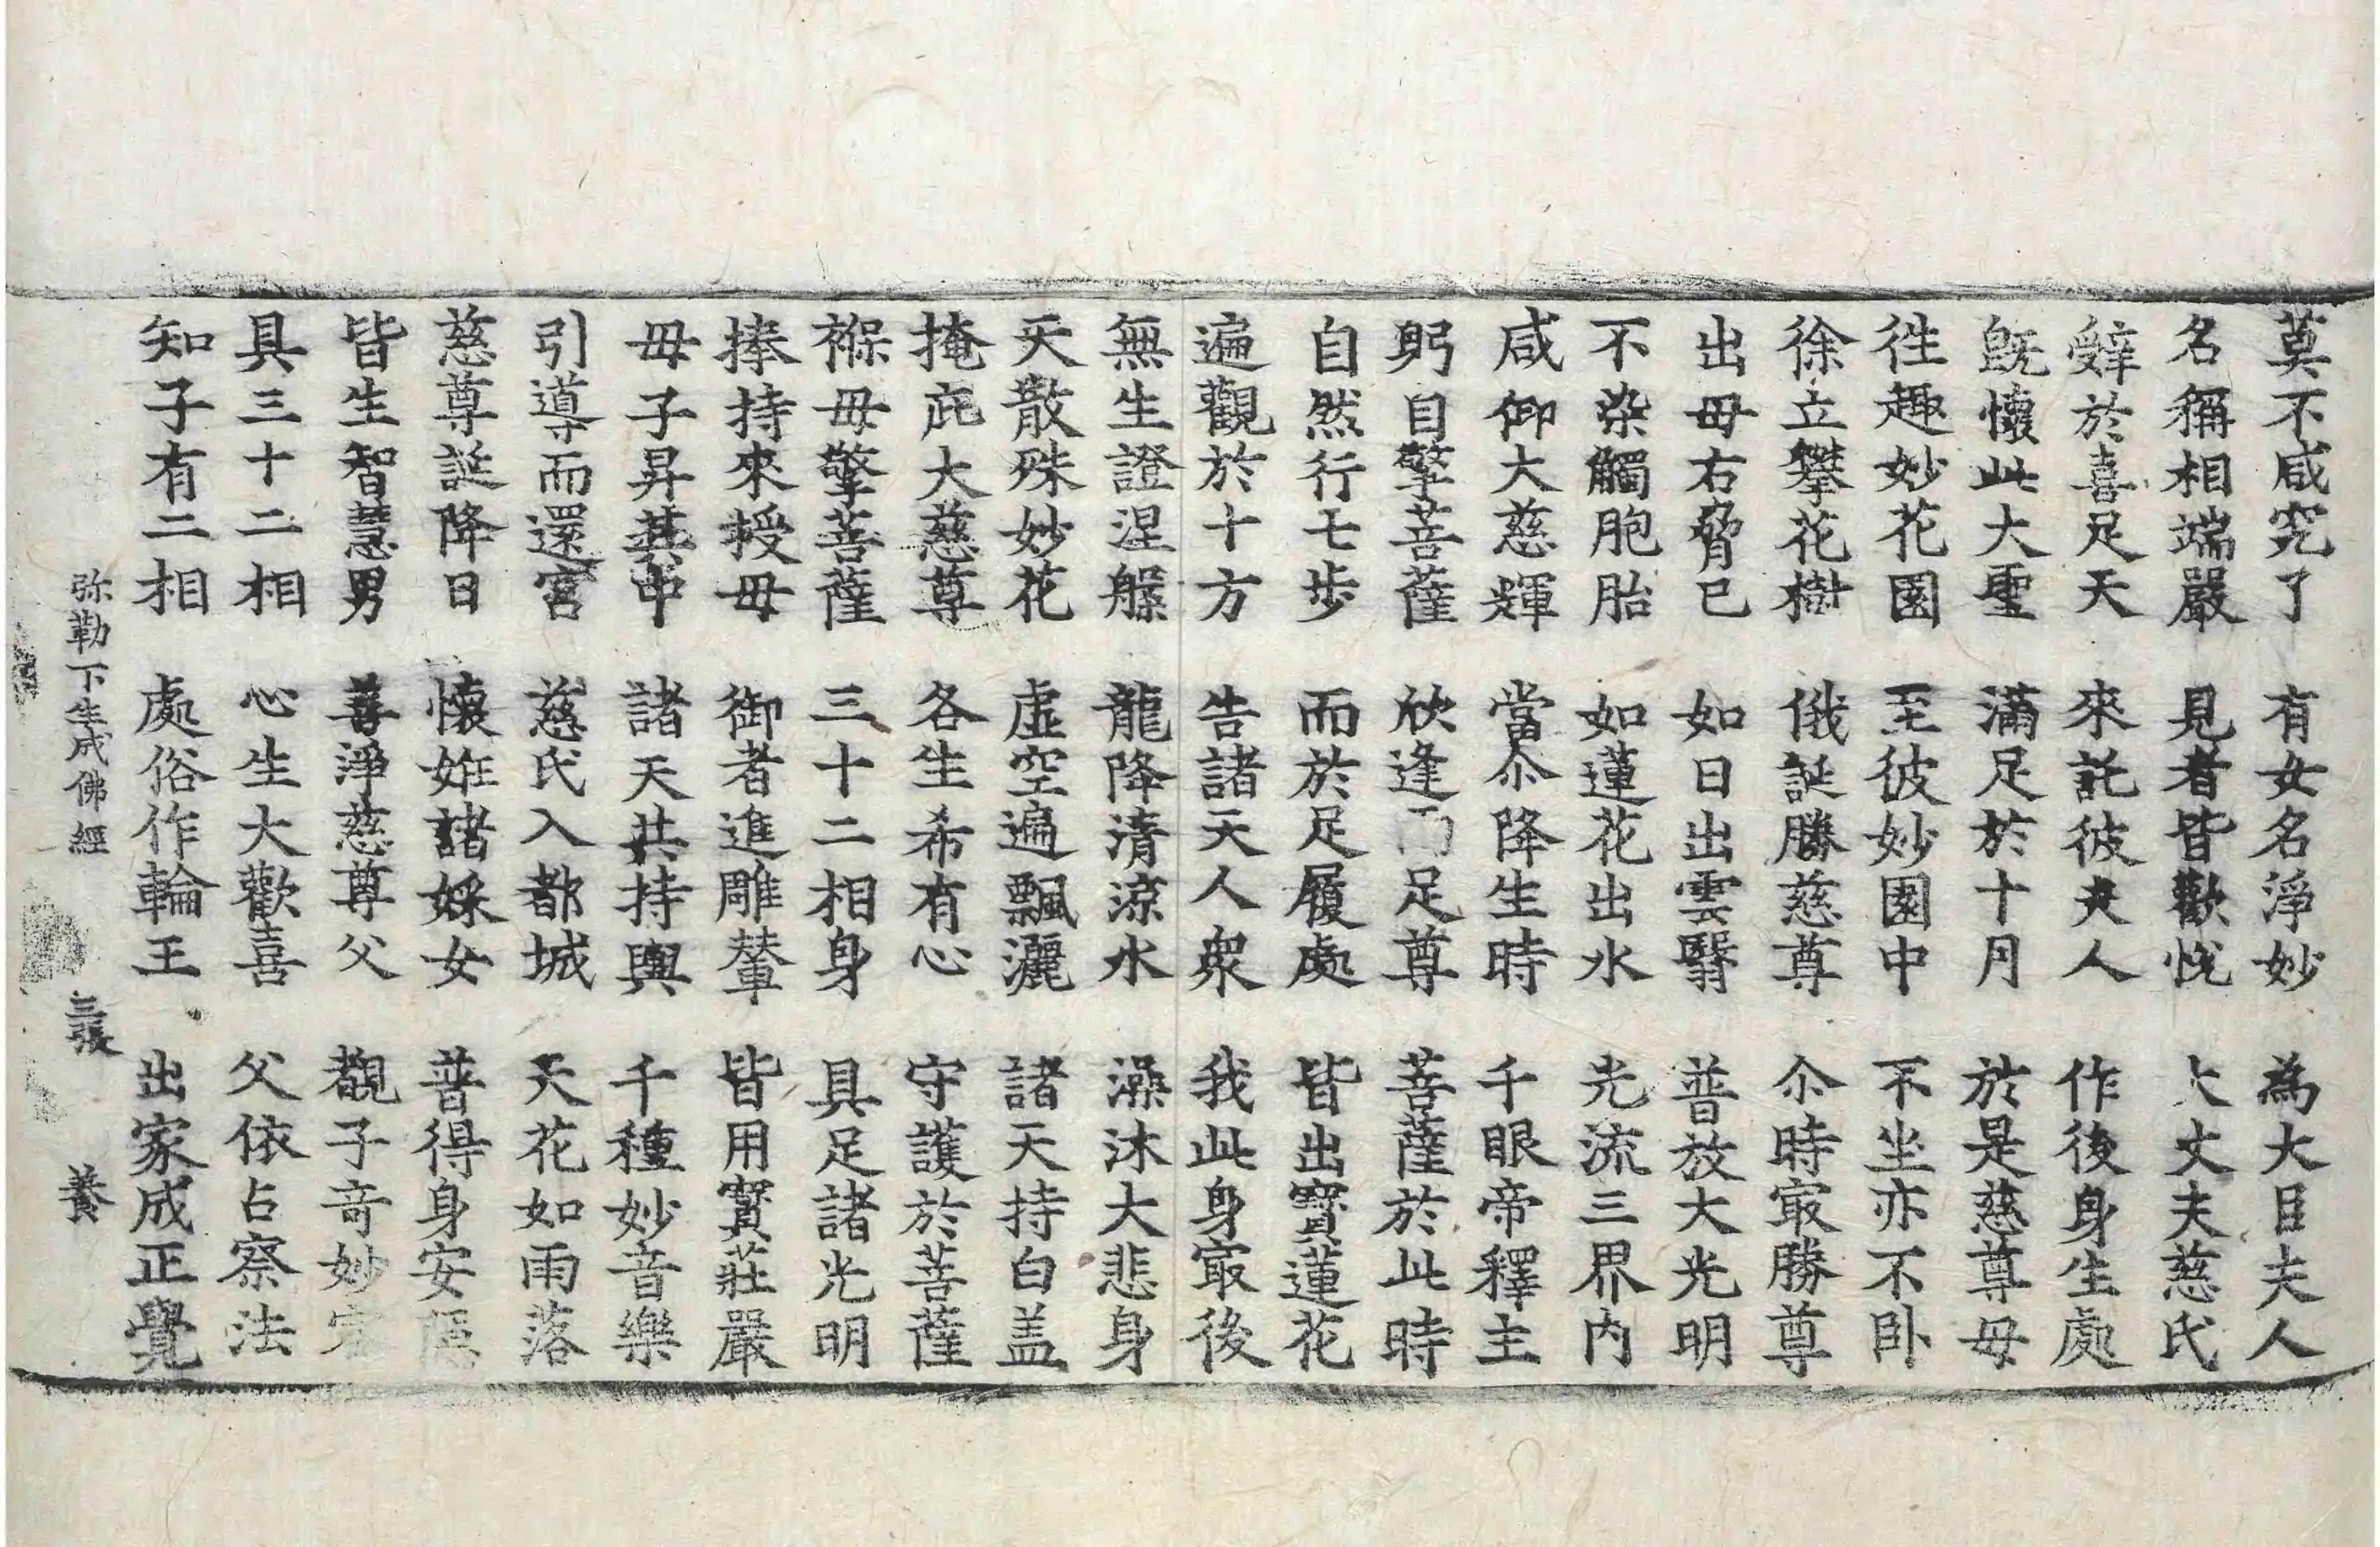 莫不咸究了 有女名淨妙 為大目夫人
名稱相端嚴 見者皆歡悅 大丈夫慈氏
辤於喜足天 來託彼夫人 作後身生處
旣懷此大聖 滿足於十月 於是慈尊母
徃趣妙花園 至彼妙園中 不坐亦不卧
徐立攀花樹 俄誕勝慈尊 尒時㝡勝尊
出母右脅已 如日出雲翳 普放大光明
不染觸胞胎 如蓮花出水 光流三界內
咸仰大慈輝 當尒降生時 千眼帝釋主
躬自擎菩薩 欣逢 足尊 菩薩於此時
自然行七步 而於足履處 皆出寶蓮花
遍觀於十方 告諸天人衆 我此身㝡後
無生證涅槃 龍降清涼水 澡沐大悲身
天散殊妙花 虛空遍飄灑 諸天持白盖
掩庇大慈尊 各生希有心 守護於菩薩
褓母擎菩薩 三十二相身 具足諸光明
捧持來授母 御者進雕輦 皆用寶莊嚴
母子昇其中 諸天共持輿 千種妙音樂
引導而還宮 慈氏入都城 天花如雨落
慈尊誕降日 懷姙諸婇女 普得身安隱
皆生智慧男 善淨慈尊父 覩子奇妙容
具三十二相 心生大歡喜 父依占察法
知子有二相 處俗作輪王 出家成正覺
弥勒下生成佛經 三張 養